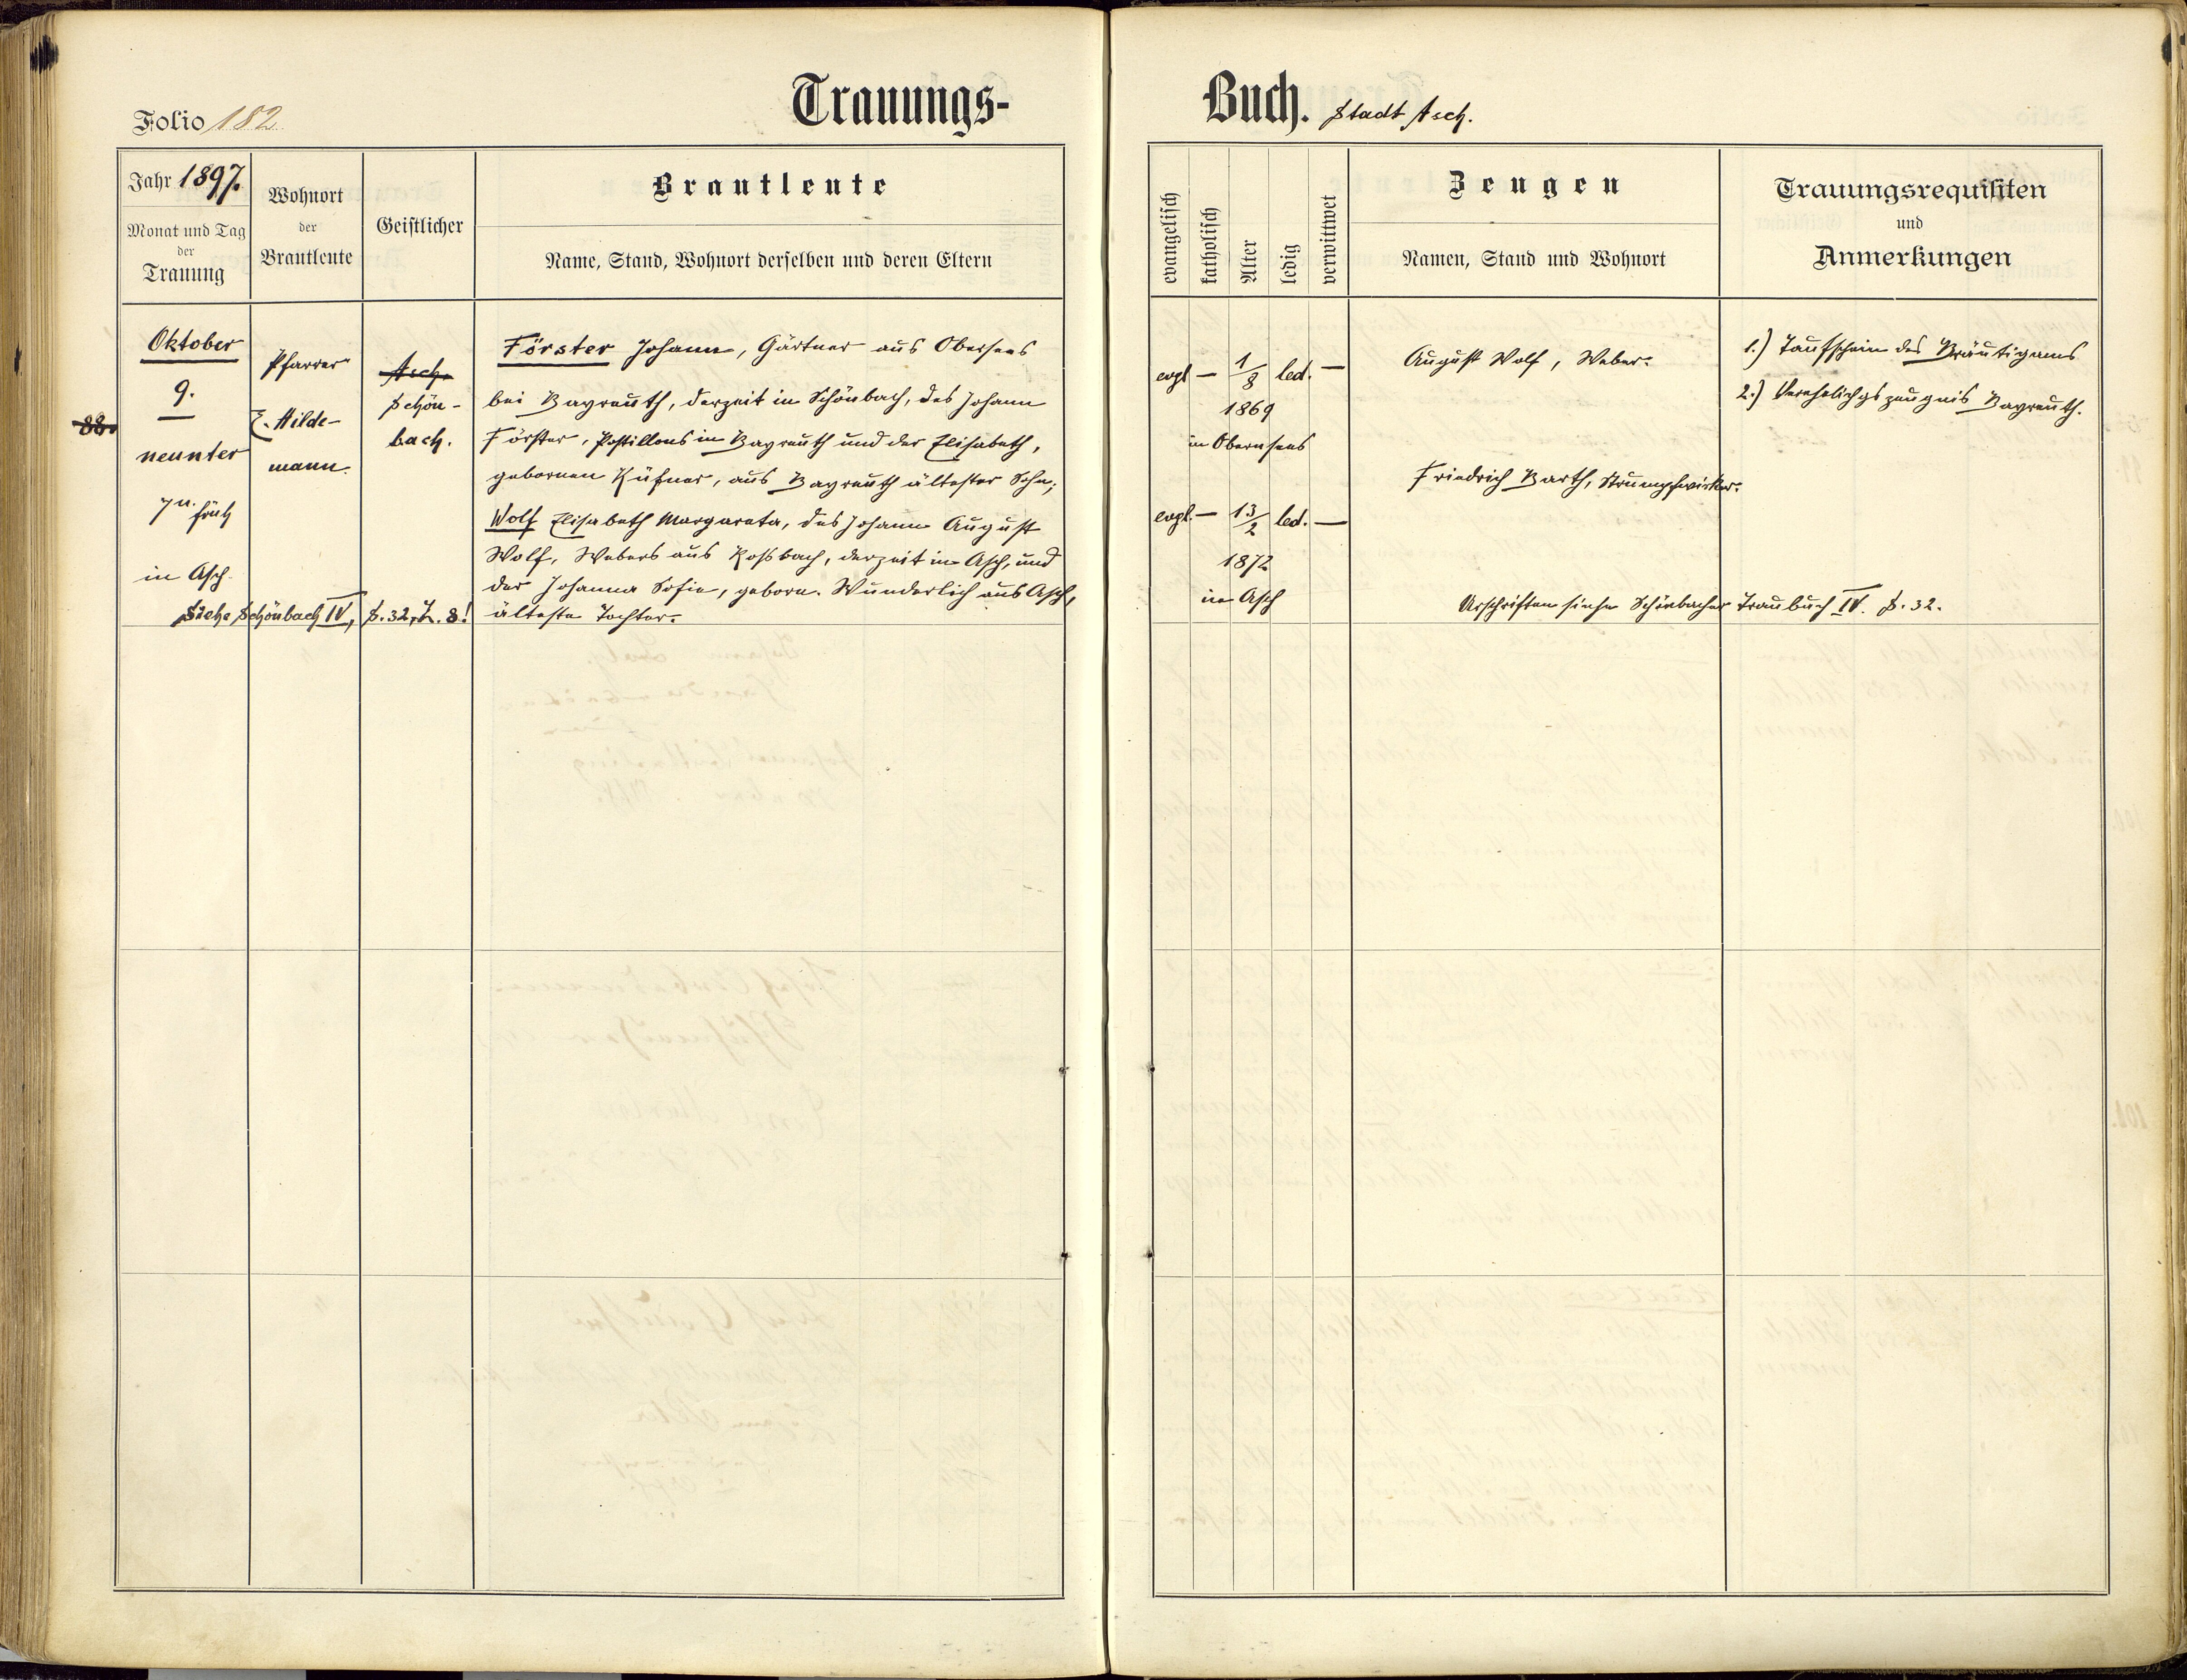 Folio 182
Trauungs-
Buch. Stadt Asch.
Jahr 1897.
Monat und Tag
der
Trauung
Wohnort
der
Brautleute
Geistlicher
Brautleute
Name, Stand, Wohnort derselben und deren Eltern
evangelisch
katholisch
Alter
ledig
verwittwet
Zeugen
Namen, Stand und Wohnort
Trauungsrequisiten
und
Anmerkungen
88.
Oktober
9.
neunter
7 u. früh
in Asch.
Pfarrer
E. Hilde-
mann.
Asch.
Schön-
bach.
Förster Johann, Gärtner aus Obersees
bei Bayreuth, derzeit in Schönbach, des Johann
Förster, Postillons in Bayreuth und der Elisabeth,
gebornen Küfner, aus Bayreuth ältester Sohn;
Wolf Elisabeth Margareta, des Johann August
Wolf, Webers aus Roßbach, derzeit in Asch, und
der Johanna Sofie, geborn. Wunderlich aus Asch,
älteste Tochter.
Siehe Schönbach IV, S. 32, Z. 8!
evgl — 1/8 led. —
1869
in Obernsees
evgl. — 13/2 led. —
1872
in Asch
August Wolf, Weber.
Friedrich Barth, Strumpfwirker.
1.) Taufschein des Bräutigams
2.) Verehelichgszeugnis Bayreuth.
Urschriften siehe Schönbacher Traubuch IV. S. 32.